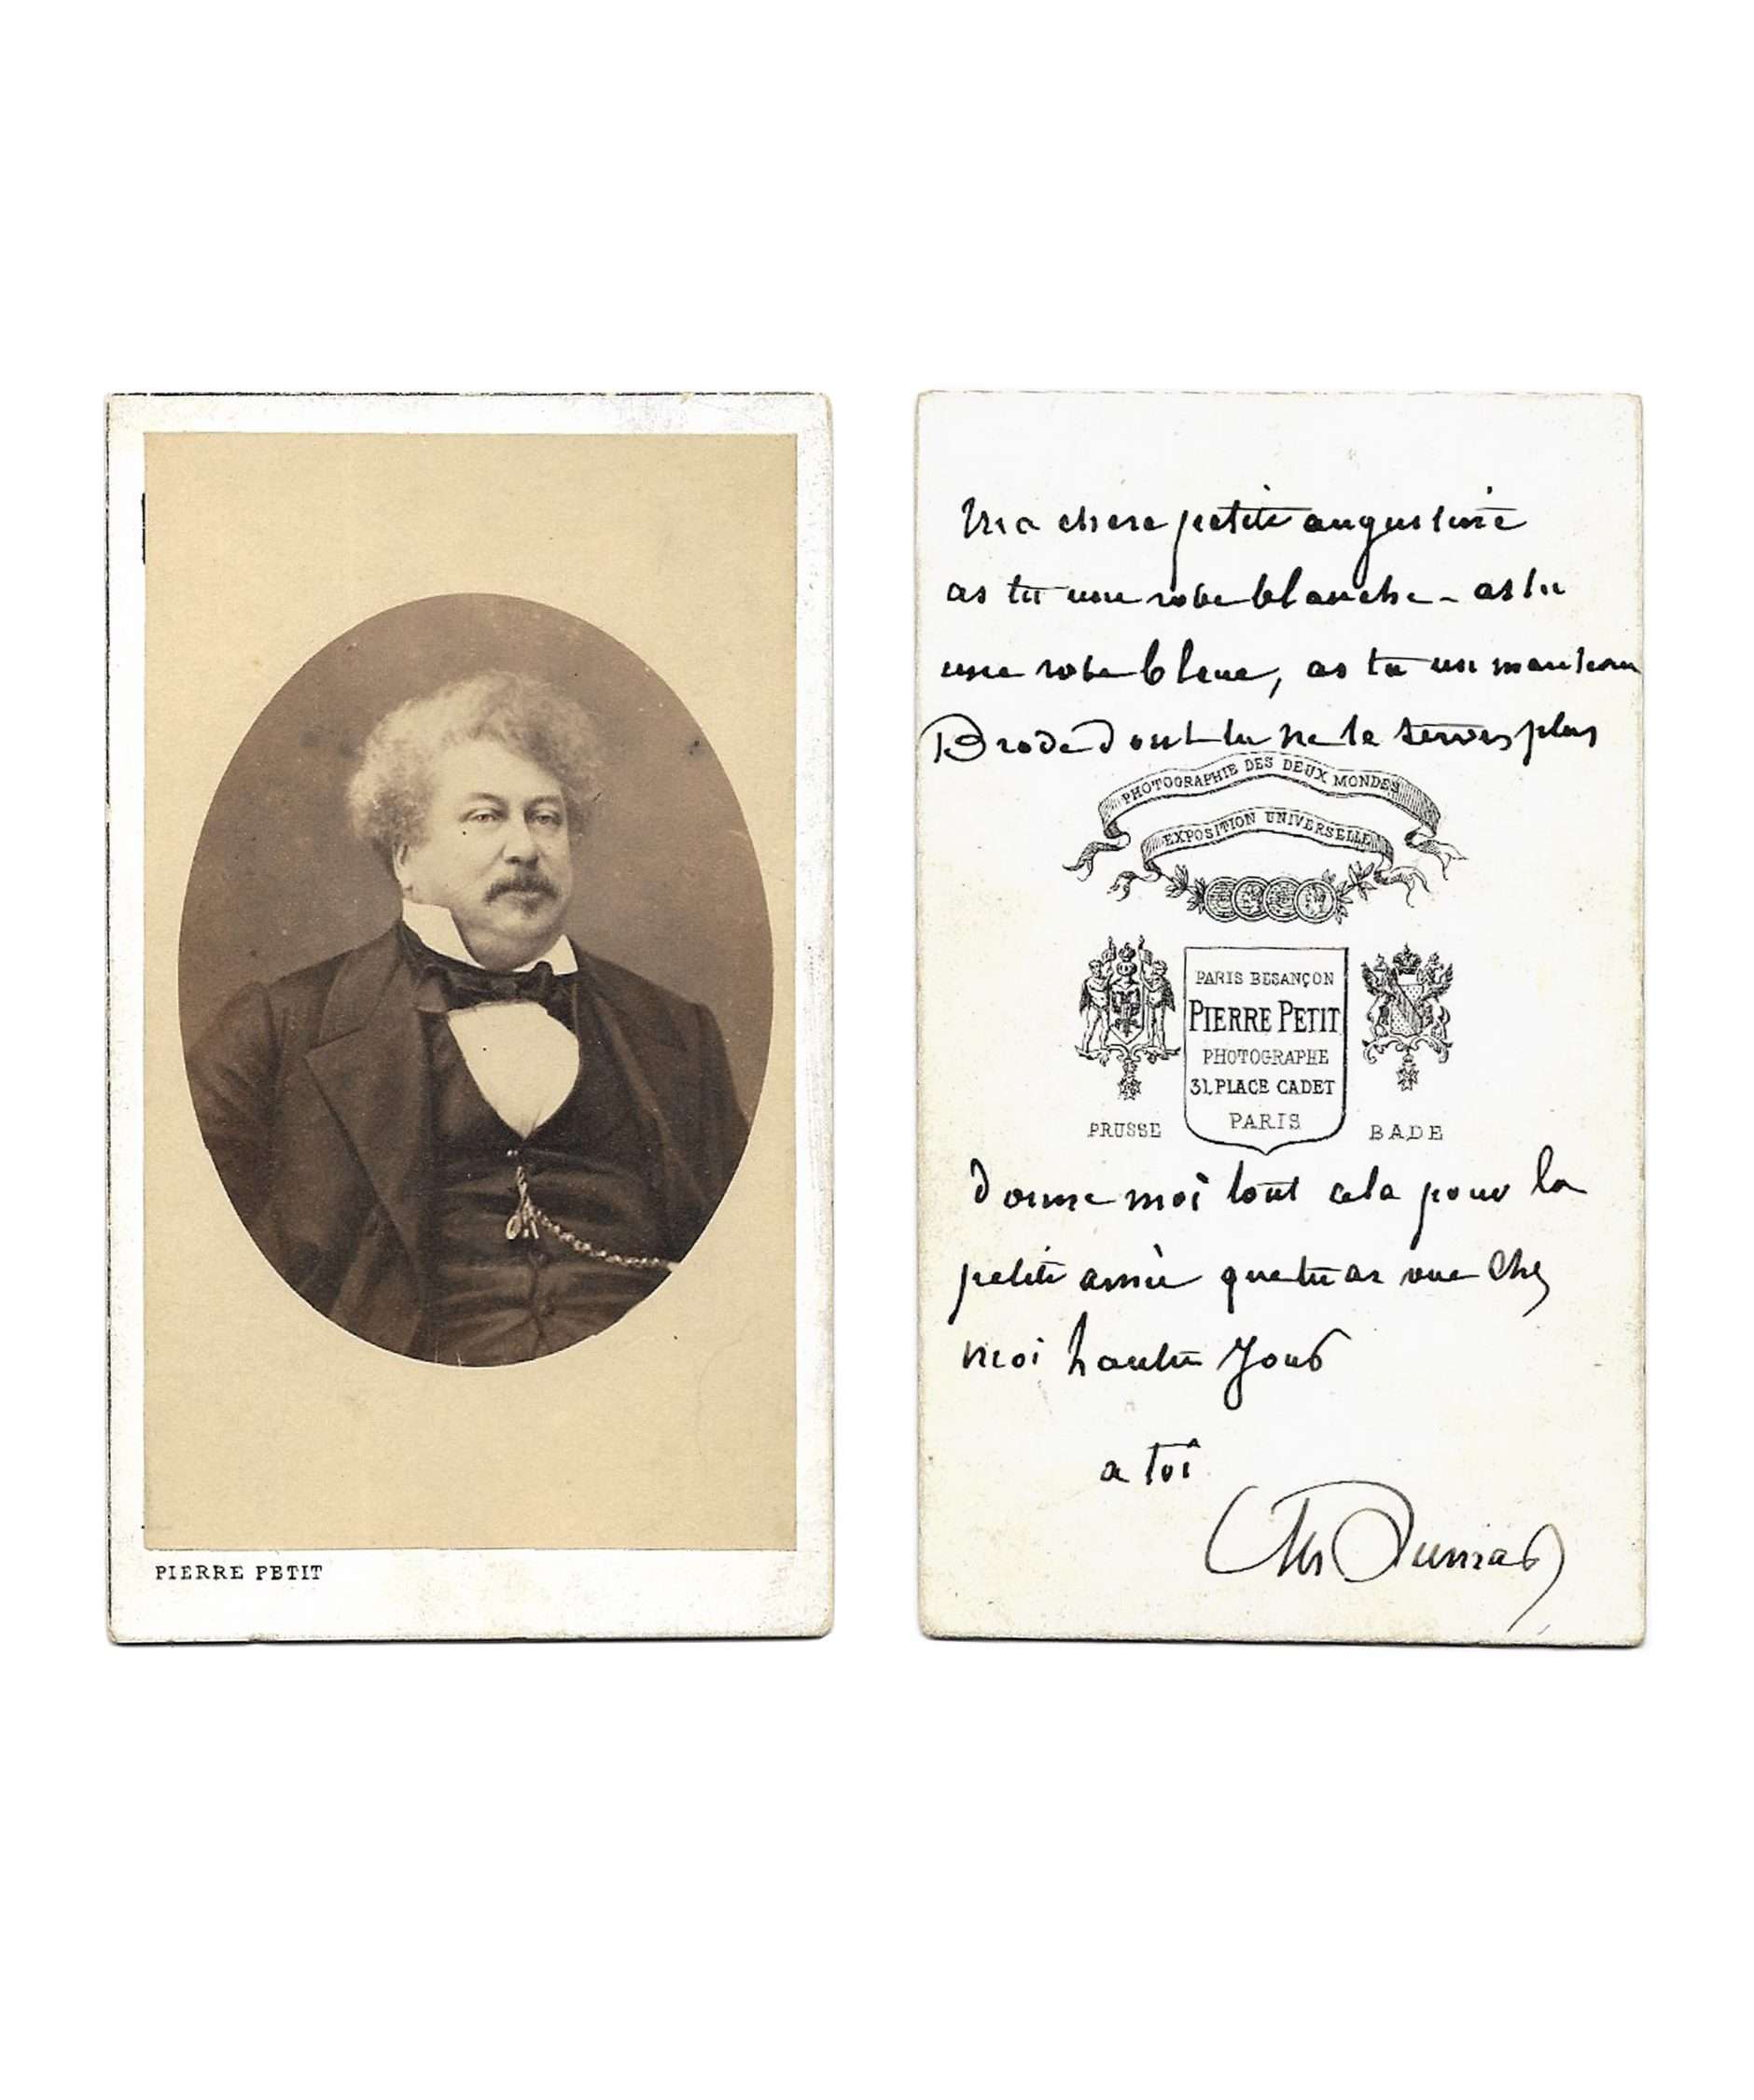 PIERRE PETIT
Ma chere petite augustine
as tu une robe blanche - as tu
une robe bleue, as tu un manteau
Brode dont tu ne te serves plus
PHOTOGRAPHIE DES DEUX MONDES
EXPOSITION UNIVERSELLE
PARIS BESANÇON
PIERRE PETIT
PHOTOGRAPHE
31, PLACE CADET
PARIS
PRUSSE
BADE
donne moi tout cela pour la
petite amie que tu as vue chez
moi hautre jour
a toi
Alex Dumas